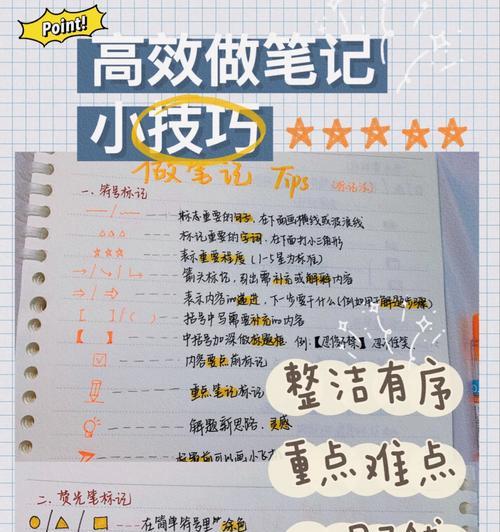 Point!
高效做笔记
小技巧
做笔记 Tips
一、符号标记
标志重要的句子,在下面画横线或波浪线
标记重要的字词,在下面打小三角形
表示重要程度(1-5星为标准)
箭头标记,引出需补充或解释内容
表示内容的递进,下一步要干什么(例如用于解题步骤)
[ ] / ( ) 括号中写需要补充的内容
【 】 中括号加深做标题框 例:【 】
内容要点前标记
重点笔记标记
解题新思路、灵感
整洁有序
重点难点
二、荧光笔标记
在简单符号里涂色